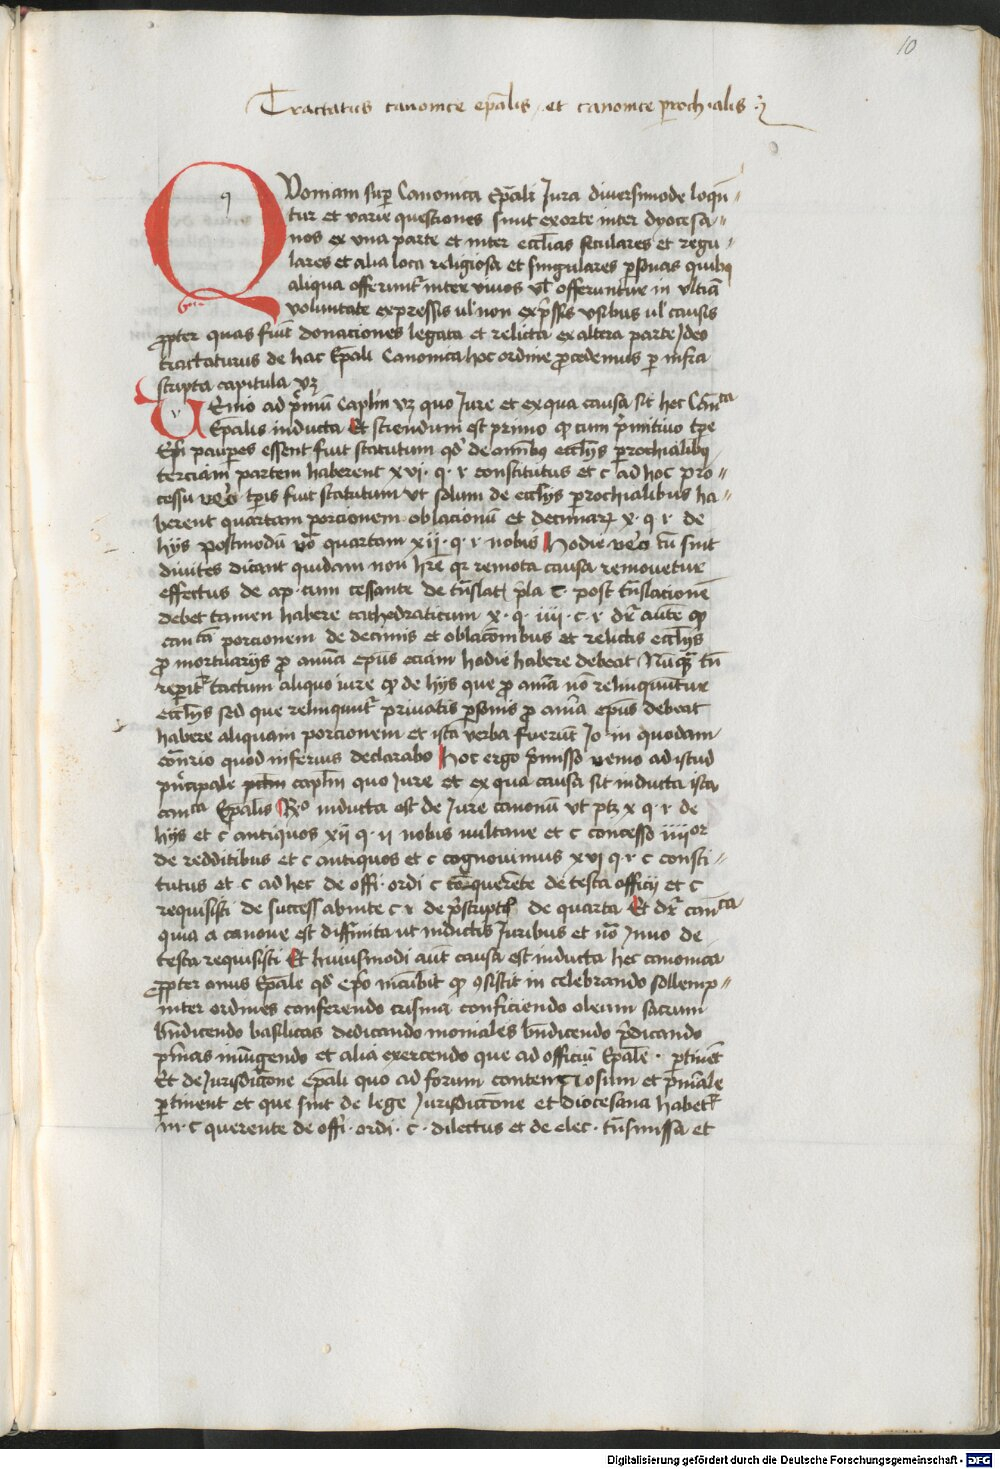 10
Tractatus canonice ep̄alis et canonice ꝑrochialis
QVoniam suꝑ Canonica Ep̄ali Jura diversimode loqūn
tur et varie questiones sunt exorte inter dyocesa-
nos ex vna parte et inter eccl̄ias seculares et regu-
lares et alia loca religiosa et singulares ꝑsonas quibꝰ
aliqua offerunt̉ inter vivos ul̉ offerunt̉ in vltīa
voluntate expressis ul̉ non exp̄ssis vsibus ul̉ causis
ꝓpter quas fiūt donaciones legata et relicta ex altera parte Ideo
tractaturus de hac Ep̄ali Canonica hoc ordine ꝓcedemus ꝑ infra
scripta capitula vꝫ
VEnio ad p̄mū Capl̄m vꝫ quo Jure et ex qua causa sit hec Canᶜᵗᵃ
Ep̄alis inducta Et sciendum est primo ꝙ cum p̄mitivo tp̄e
Ep̄i paupes essent fuit statutum qd̉ de om̄ibꝰ eccl̄ijs ꝑrochialibꝰ
terciam partem haberent xvi · q · i constitutus et c ad hoc pro-
cessu vero tp̄is fuit statutum vt solum de eccl̄ijs ꝑrochialibus ha-
berent quartam porcionem oblacionū et decimaꝝ x · q i · de
hijs postmodū vo quartam xij · q · i nobis Hodie vero cū sint
divites dicunt quidam non hr̄e qꝛ remota causa removetur
effectus de ap · cum cessante de tn̄slat p̄la c · post tn̄slacionē
debet tamen habere cathedraticum x · q · iiii · c · i dr̄ aūt ꝙ
canᶜᵗᵃ porcionem de decimis et oblacōnibus et relictis eccl̄ijs
ꝓ mortuarijs ꝓ aniā ep̄us eciam hodie habere debeat Nūqᵃ tn̄
reperit̉ tactum aliquo iure ꝙ de hijs que ꝓ aniā nō relinquuntur
eccl̄ijs sed que relinquunt̉ privatis ꝑsonis ꝓ aniā ep̄us debeat
habere aliquam porcionem et ista verba fuerūt Jo in quodam
con̄rio quod inferius declarabo Hoc ergo p̄misso venio ad istud
p̄ncipale capl̄m quo Jure et ex qua causa sit inducta ista
canᶜᵗᵃ Ep̄alis R° inducta est de Jure canonū vt ptꝫ x q i de
hijs et c antiquos xij q · ij nobis vultane et c concesso iiiiᵒʳ
de redditibus et c antiquos et c cognovimus xvj q i c consti-
tutus et c ad hec de offi · ordi c conquerēte de testa officij et c
requisisti de success ab inte c i de p̄script de quarta Et dr̄ canᶜᵗᵃ
quia a canone est diffinita ut in dictis Juribus et nō Jnno de
testa requisisti Et huiusmodi aūt causa est inducta hec canonica
ꝓpter onus Ep̄ale qd̉ ep̄o incūbit ꝙ ꝯsistit in celebrando sollemp-
niter ordines conferendo crisma conficiendo oleum sacrum
bn̄dicendo basilicas dedicando moniales bn̄dicendo p̄dicando
pn̄ias iniūgendo et alia exercendo que ad officiū Ep̄ale · ꝑtinēt
Et de Jurisdictōne ep̄ali quo ad forum contentiosum et pn̄iale
ꝑtinent et que sint de lege Jurisdiccōne et diocesana habet̉
in · c querente de offi · ordi · c · dilectus et de elec · tn̄smissa et
Digitalisierung gefördert durch die Deutsche Forschungsgemeinschaft - DFG